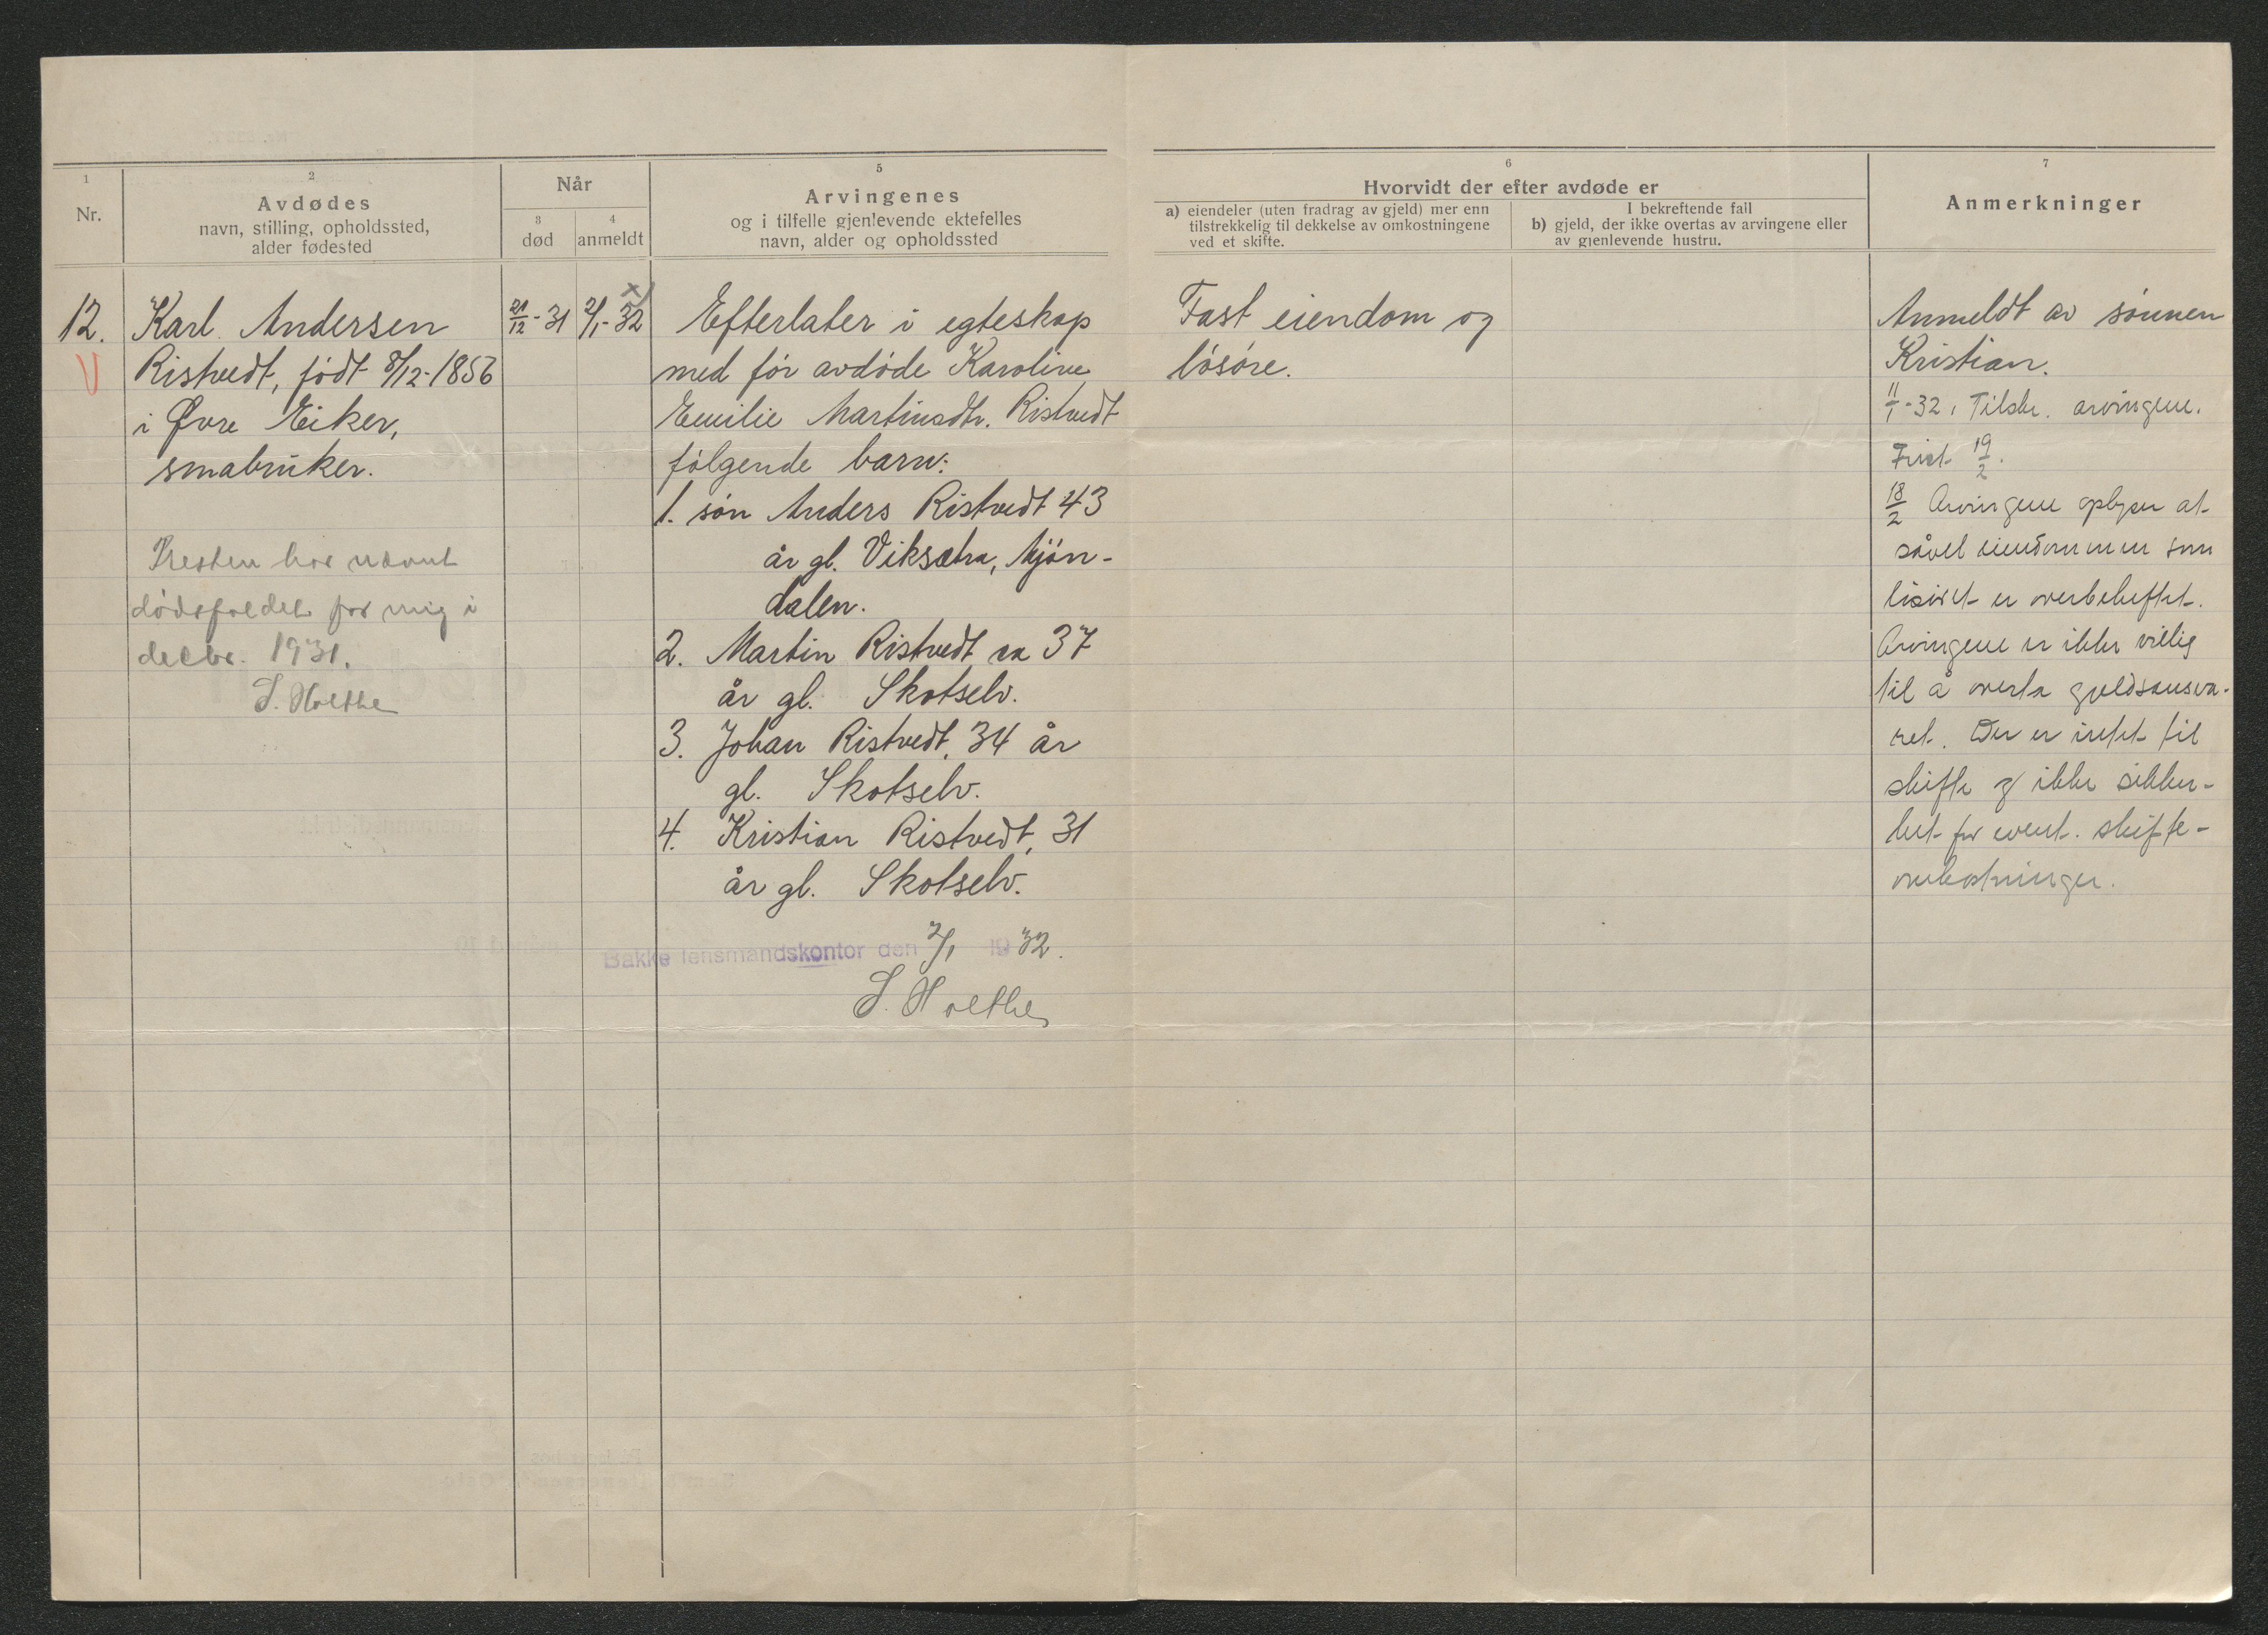 1
Nr.
2
Avdødes
navn, stilling, opholdssted,
alder fødested
Når
3
død
4
anmeldt
5
Arvingenes
og i tilfelle gjenlevende ektefelles
navn, alder og opholdssted
6
Hvorvidt der efter avdøde er
a) eiendeler (uten fradrag av gjeld) mer enn
tilstrekkelig til dekkelse av omkostningene
ved et skifte.
I bekreftende fall
b) gjeld, der ikke overtas av arvingene eller
av gjenlevende hustru.
7
Anmerkninger
12.
Karl Andersen
Ristvedt, født 8/12-1856
i Øvre Eiker,
småbruker.
Presten har nævnt
dødsfaldet for mig i
decbr. 1931.
S. Holthe
21/12-31
2/1-32 x)
Efterlater i egteskap
med før avdøde Karoline
Emilie Martinsdtr. Ristvedt
følgende barn:
1. søn Anders Ristvedt 43
år gl. Viksætra, Mjøn-
dalen.
2. Martin Ristvedt ca 37
år gl. Skotselv.
3. Johan Ristvedt, 34 år
gl. Skotselv.
4. Kristian Ristvedt, 31
år gl. Skotselv.
Bakke lensmandskontor den 2/1 1932.
S. Holthe
Fast eiendom og
løsøre.
Anmeldt av sønnen
Kristian.
11/1-32. Tilskr. arvingene.
Frist 19/2.
18/2 Arvingene oplyser at
såvel eiendommen som
løsøret er overbeheftet.
Arvingene er ikke villig
til å overta gjeldsansva-
ret. Der er intet til
skifte og ikke sikker-
het for event. skifte-
omkostninger.